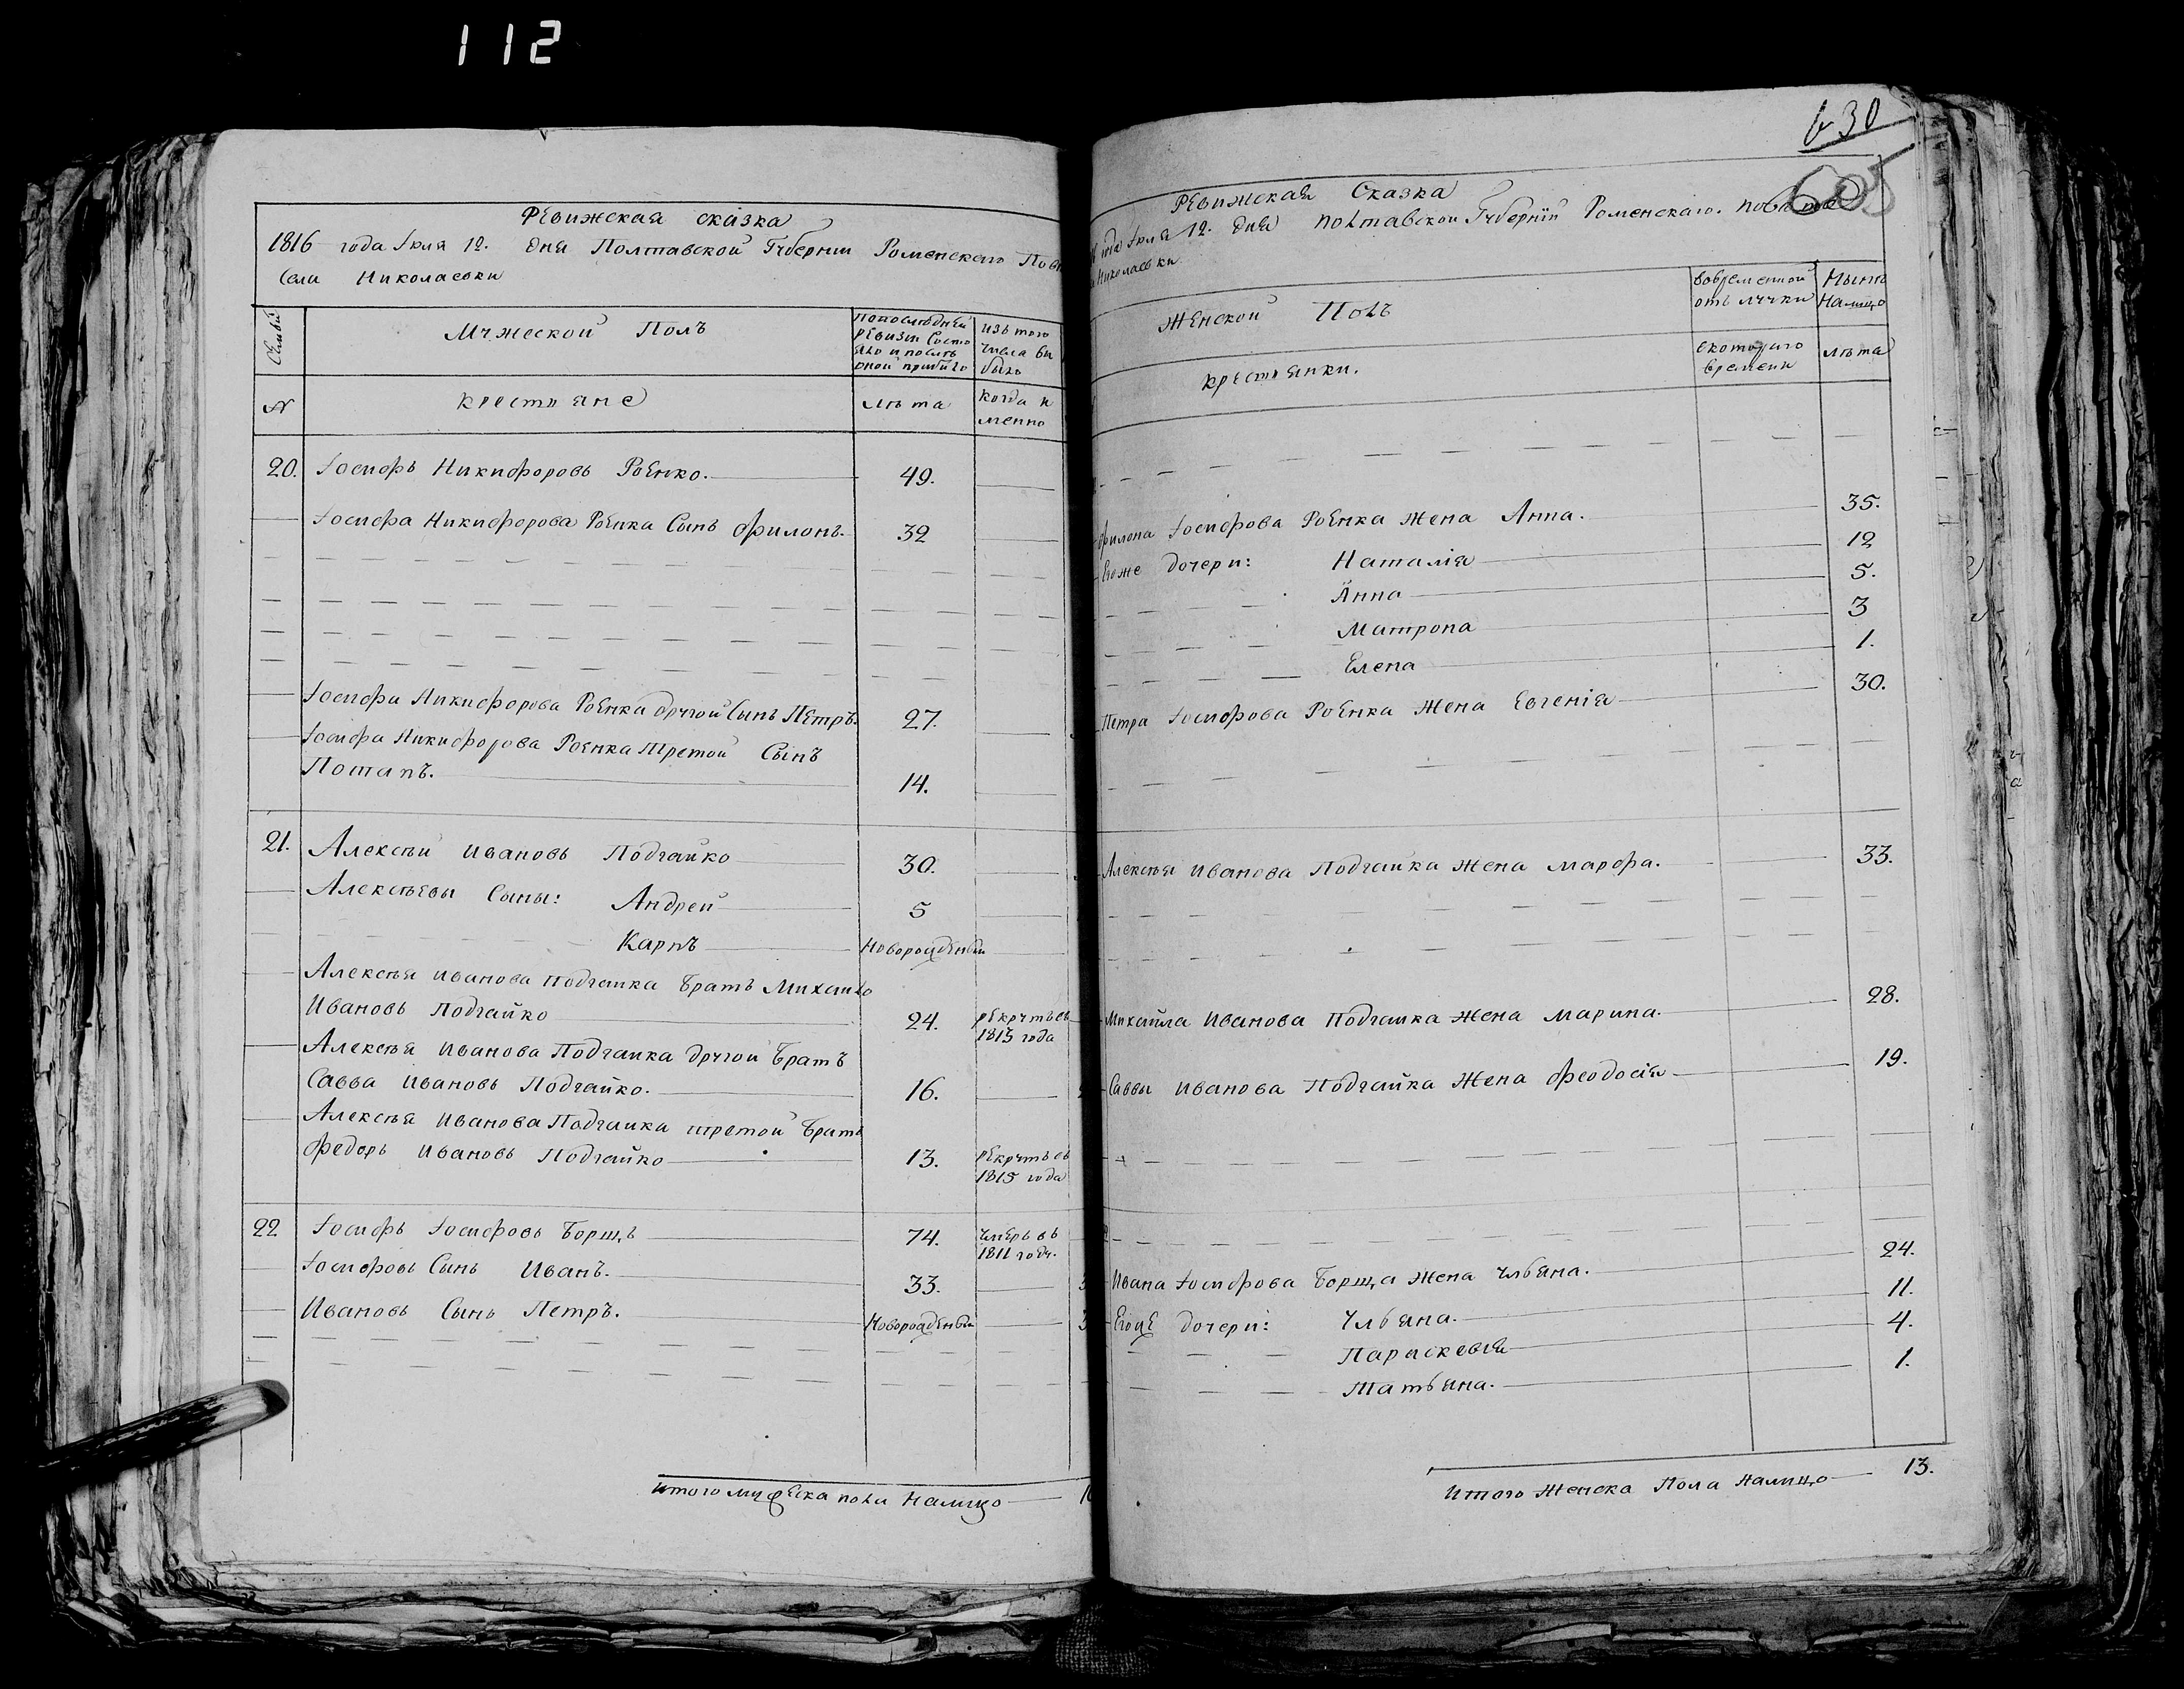 112
Ревижская сказка
1816 года Іюля 12. дня Полтавской Губернии Роменскаго
Сели Николаевки
Семьи
Мужеской Полъ
попослѣдней ревизи Состояло и послѣ оной прибыло
изъ того числа выбыло
№
крестьяне
лѣта
когда имянно
20. Іосифъ Никифоровъ Роенко. 49.
Іосифа Никифорова Роенка Сынъ Филонъ. 32
Іосифа Никифорова Роенка другой Сынъ Петръ. 27.
Іосифа Никифорова Роенка третой Сынъ
Потапъ. 14.
21. Алексѣй Ивановъ Подгайко 30.
Алексѣевы Сыны: Андрей 5
Карпъ Новорожденый
Алексѣя Иванова Подгайка Братъ Михайло
Ивановъ Подгайко 24. рекрутъ съ 1813 года
Алексѣя Иванова Подгайка другой Братъ
Савва Ивановъ Подгайко. 16.
Алексѣя Иванова Подгайка третой Братъ
Федоръ Ивановъ Подгайко 13. рекрутъ съ 1815 года
22 Іосифъ Іосифовъ Борщъ 74. умеръ въ 1811 году.
Іосифовъ Сынъ Иванъ. 33.
Ивановъ Сынъ Петръ. Новорожденый
Итого мужеска пола Налицо
630
Ревижская Сказка
года Іюля 12. дня Полтавской Губерніи Роменскаго.
Николаевки
Женской Полъ
Вовременной отълучки
Нынѣ Налицо
крестьянки.
скотораго времени
лѣта
Филона Іосифова Роенка Жена Анна. 35.
Егоже дочери: Наталія 12
Анна 5.
Матрона 3
Елена 1.
Петра Іосифова Роенка Жена Евгенія 30.
Алексѣя Иванова Подгайка Жена Марфа. 33.
Михайла Иванова Подгайка Жена Марина. 28.
Саввы Иванова Подгайка Жена Феодосія 19.
Ивана Іосифова Борща Жена Ульяна. 24.
Егоже дочери: Ульяна. 11.
Параскевія 4.
Татьяна. 1.
Итого Женска Пола Налицо 13.